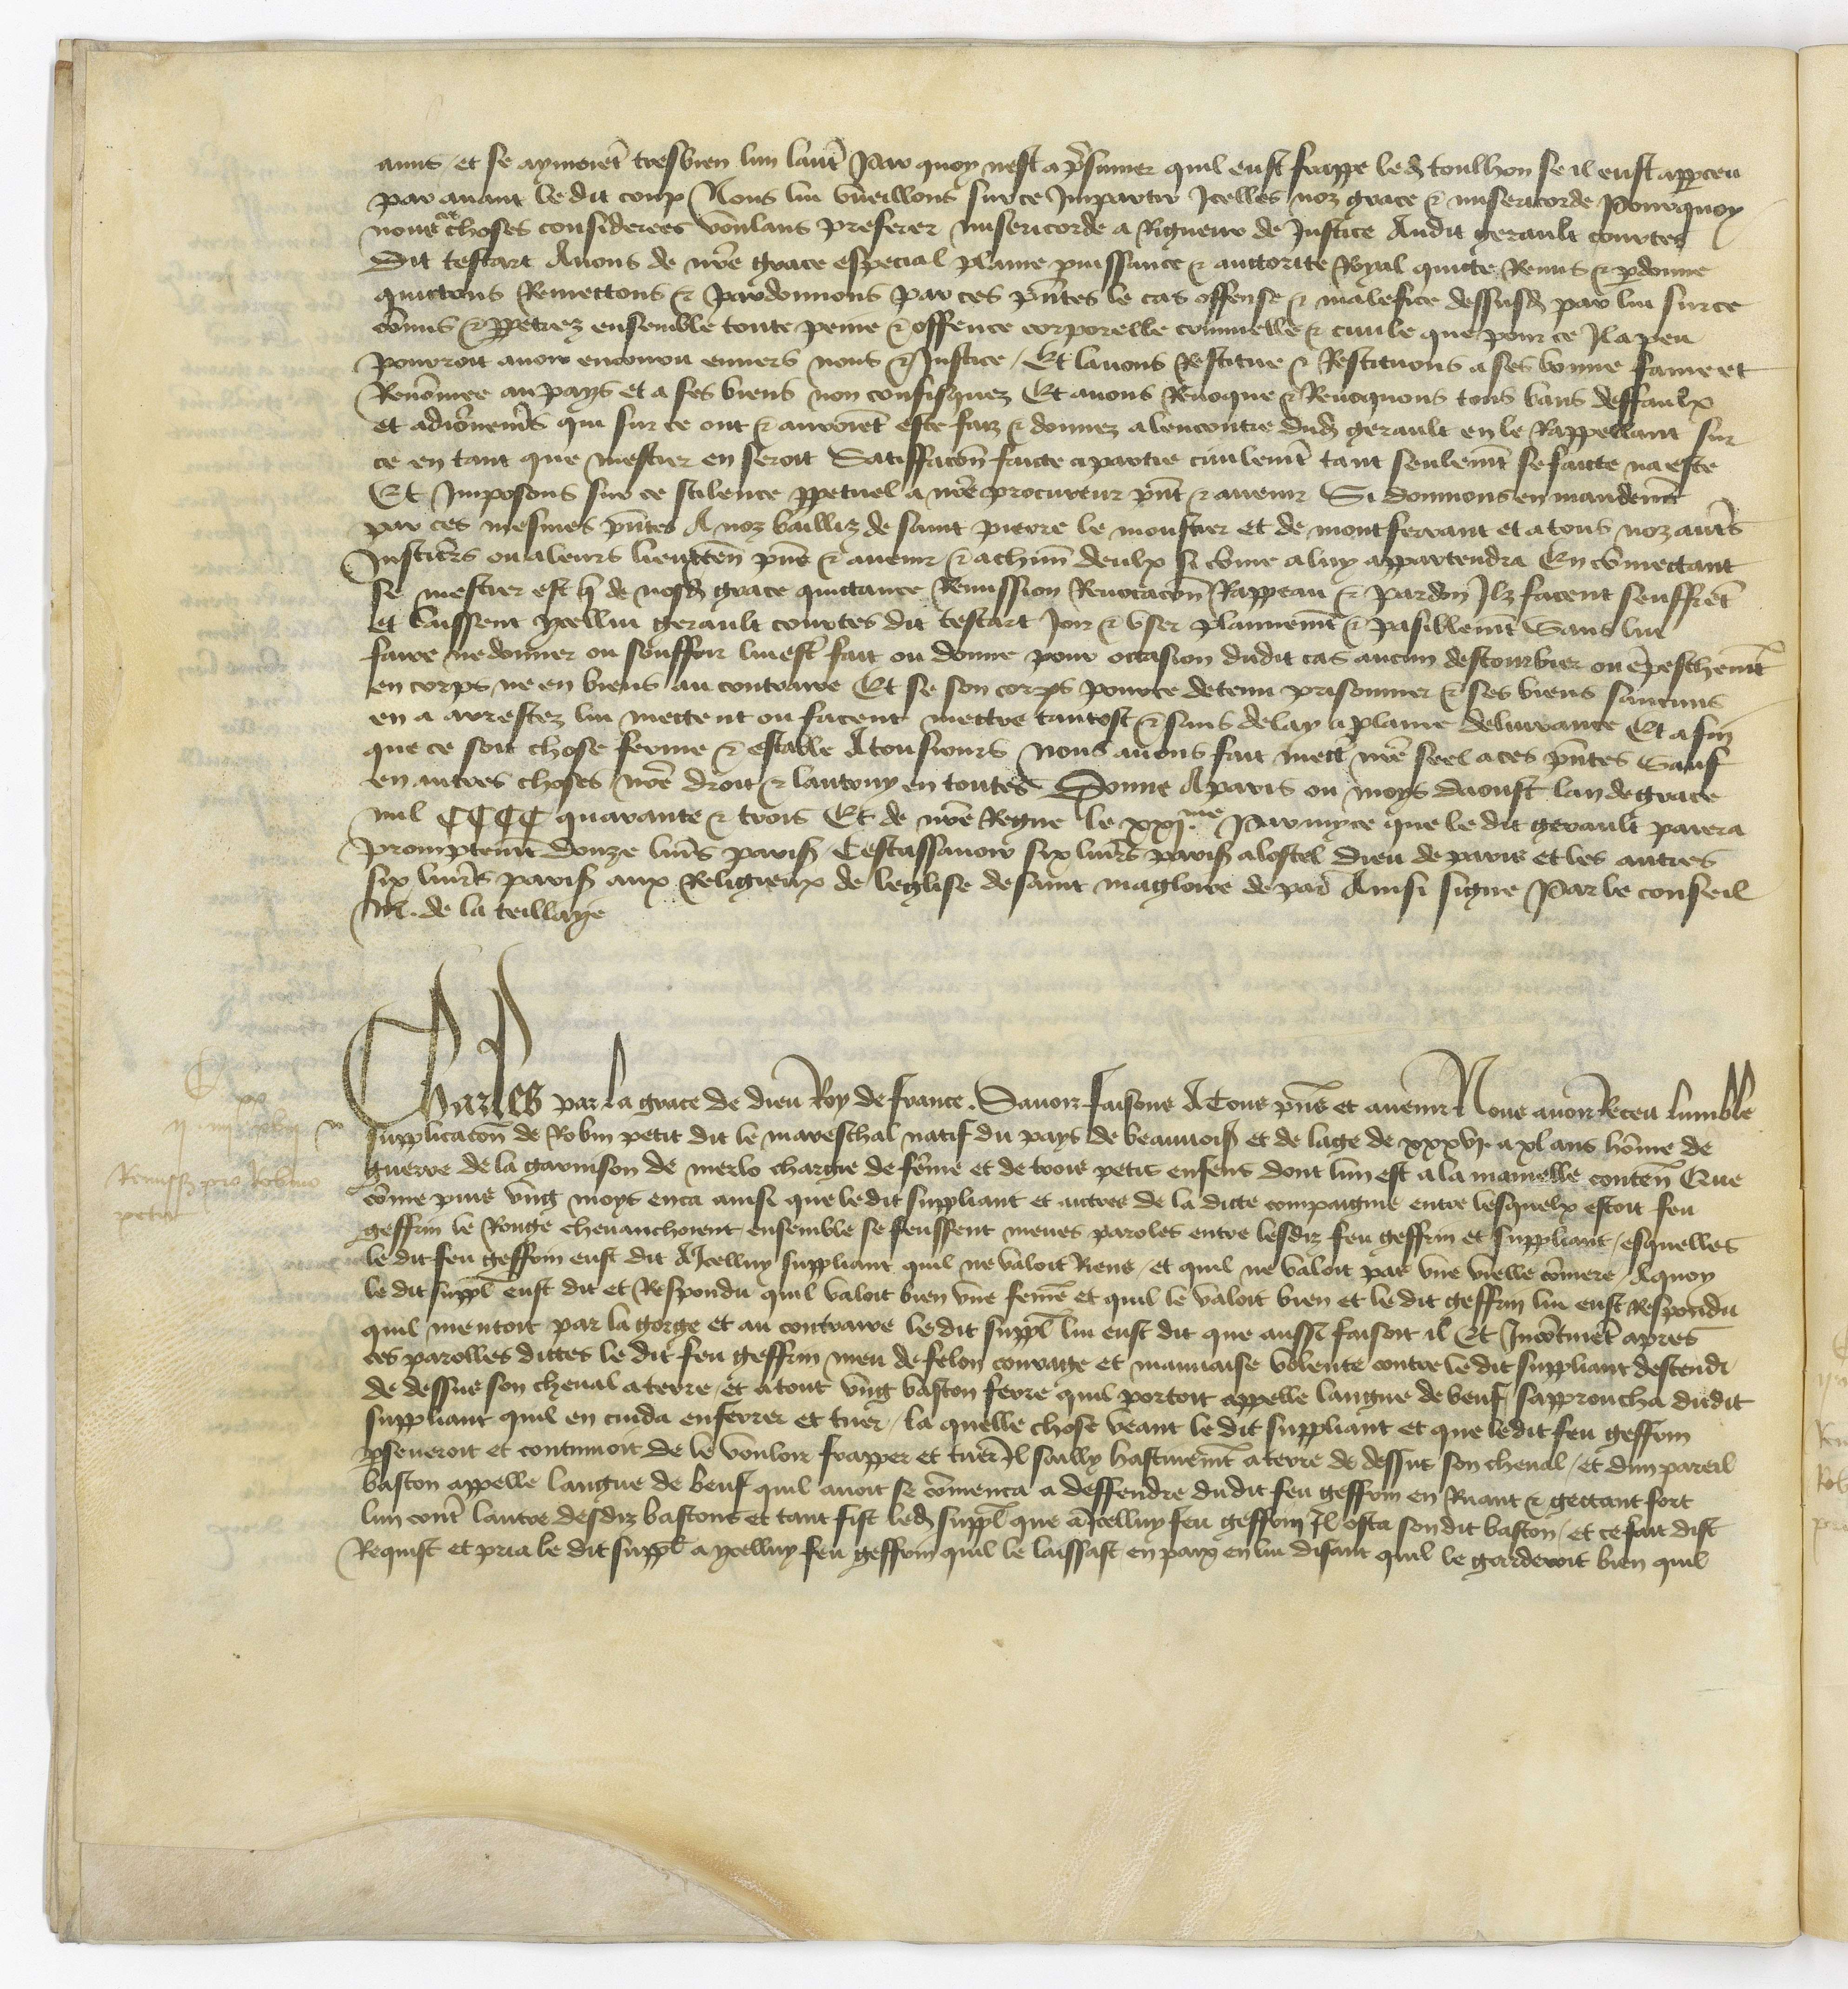 amis et se aymoiet tresbien lun laut Par quoy nest a psumer quil eust frappe led toulhon se il eust apperceu
par avant le dit coup Nous lui vueillons sur ce Impartir Icelles noz grace & misericorde Pourquoy
nous ces choses considerees voulans preferer misericorde a Rigueur de Justice Audit gerault courtes
Dit testart Avons de nre grace especial plaine puissance & auctorite Royal quicte Remis & pdonne
quictons Remectons & pardonnons par ces pntes le cas offense & malefice dessusd par lui sur ce
comis & ppetrez ensemble toute peine & offence corporelle criminelle & civile que pour ce Il a peu
pourroit avoir encouru envers nous & Justice Et lavons Restitue & Restituons a ses bonne fame et
Renomee au pays et a ses biens non confisquez Et avons Revoque & Revoquons tous bans deffaulx
et adiornemes qui sur ce ont & auroiet este faiz & donnez alencontre dud gerault en le Rappellant sur
ce en tant que mestier en seroit Satiffacon faicte a partie civilemt tant seulemt se faicte na este
Et Imposons sur ce silence ppetuel a nre procureur pnt & avenir Si donnons en mandemt
par ces mesmes pntes A noz bailliz de saint pierre le moustier et de montferrant et a tous noz auts
Justiciers ou a leurs lieuxten pns & avenir & a chun deulx si come a luy appartendra En comectant
se mestier est q de nosd grace quictance Remission Revocacon Rappeau & pardon Ilz facent seuffret
et laissent ycellui gerault courtes dit testart Joir & user plainnemt & paisiblemt Sans lui
faire ne donner ou souffrir lui estre fait ou donne pour occasion dudit cas aucun destourbier ou epeschemt
en corps ne en biens au contraire Et se son corps pour ce detenu prisonnier & ses biens saucuns
en a arrestez lui mectent ou facent mettre tantost & sans delay a plaine delivrance Et afin
que ce soit chose ferme & estable A tousiours nous avons fait mect nre seel a ces pntes Sauf
en autres choses nre droit & lautruy en toutes Donne A paris ou moys daoust lan de grace
mil CCCC quarante & trois Et de nre Regne le xxime Parmyce que le dit gerault paiera
promptemt douze livres paris Cestassavoir six livres paris a lostel Dieu de paris et les autres
six livres paris aux Religieux de leglise de saint magloire de par Ainsi signe Par le conseil
M. de la teillaye
Charles par la grace de dieu Roy de france. Savoir faisons A Tous pns et avenir Nous avoir Receu lumble
supplicacon de Robin petit dit le mareschal natif du pays de beauvoisis et de lage de xxxvi a xl ans home de
guerre de la garnison de merlo charge de feme et de trois petis enfens dont lun est a la mamelle conten Que
come puis ung moys enca ainsi que le dit suppliant et autres de la dicte compaignie entre lesquelx estoit feu
geffrin le Rouge chevauchoient ensemble se feussent meues paroles entre lesdiz feu geffrin et suppliant esquelles
le dit feu geffrin eust dit A Icelluy suppliant quil ne valoit Riens et quil ne valoit pas une vielle comere Aquoy
le dit suppl eust dit et Respondu quil valoit bien une feme et quil le valoit bien et le dit geffrin lui eust Respondu
quil mentoit par la gorge et au contraire le dit suppl lui eust dit que aussi faisoit il Et Incotinet apres
ces parolles dictes le dit feu geffrin meu de felon courage et mauvaise volente contre le dit suppliant descendi
de dessus son cheval a terre et a tout ung baston ferre quil portoit appelle langue de beuf sapproucha dudit
suppliant quil en cuida enferrer et tuer la quelle chose veant le dit suppliant et que le dit feu geffrin
pseveroit et continuoit de le vouloir frapper et tuer Il sailly hastivemt a terre de dessus son cheval et dun pareil
baston appelle langue de beuf quil avoit se comenca a deffendre dudit feu geffrin en Ruant & gectant fort
lun cont lautre desdiz bastons et tant fist led suppl que a Icelluy feu geffrin Il osta son dit baston et ce fait dist
Requist et pria le dit suppl a ycelluy feu geffrin quil le laissast en paix en lui disant quil le garderoit bien quil
Remiss pro Robino
petit